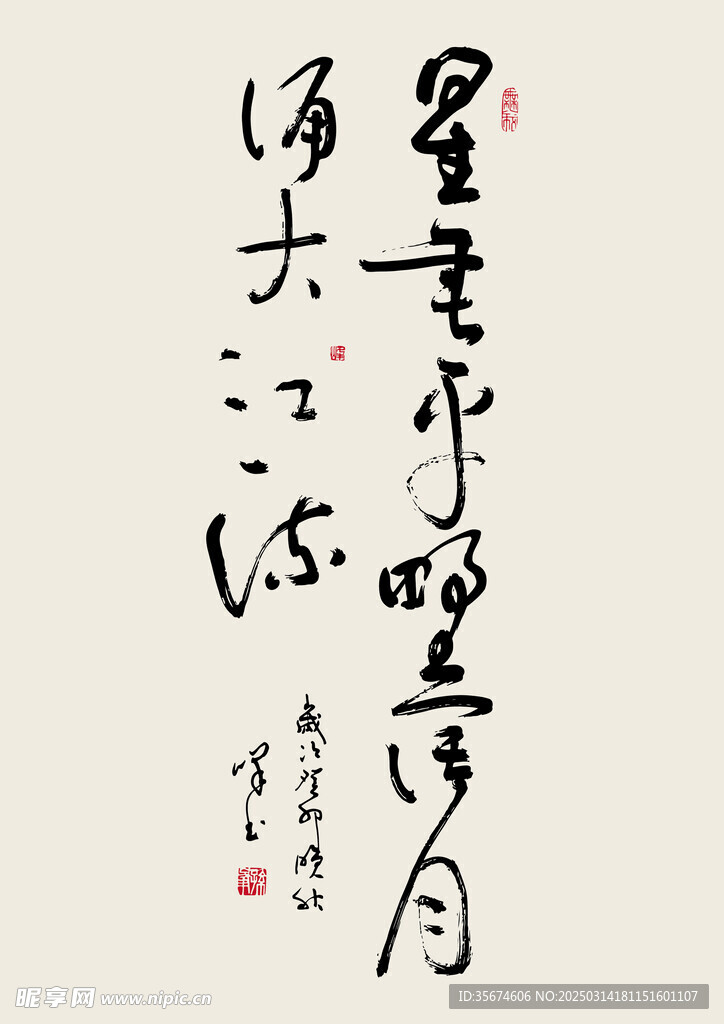 星垂平野闊月
涌大江流
歲次癸卯晚秋
昵享网 www.nipic.cn
ID:35674606 NO:20250314181151601107